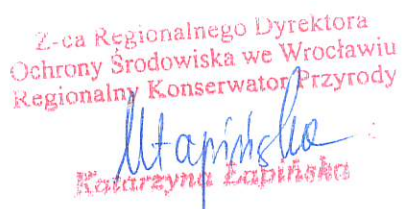 Z-ca Regionalnego Dyrektora
Ochrony Środowiska we Wrocławiu
Regionalny Konserwator Przyrody
Katarzyna Łapińska